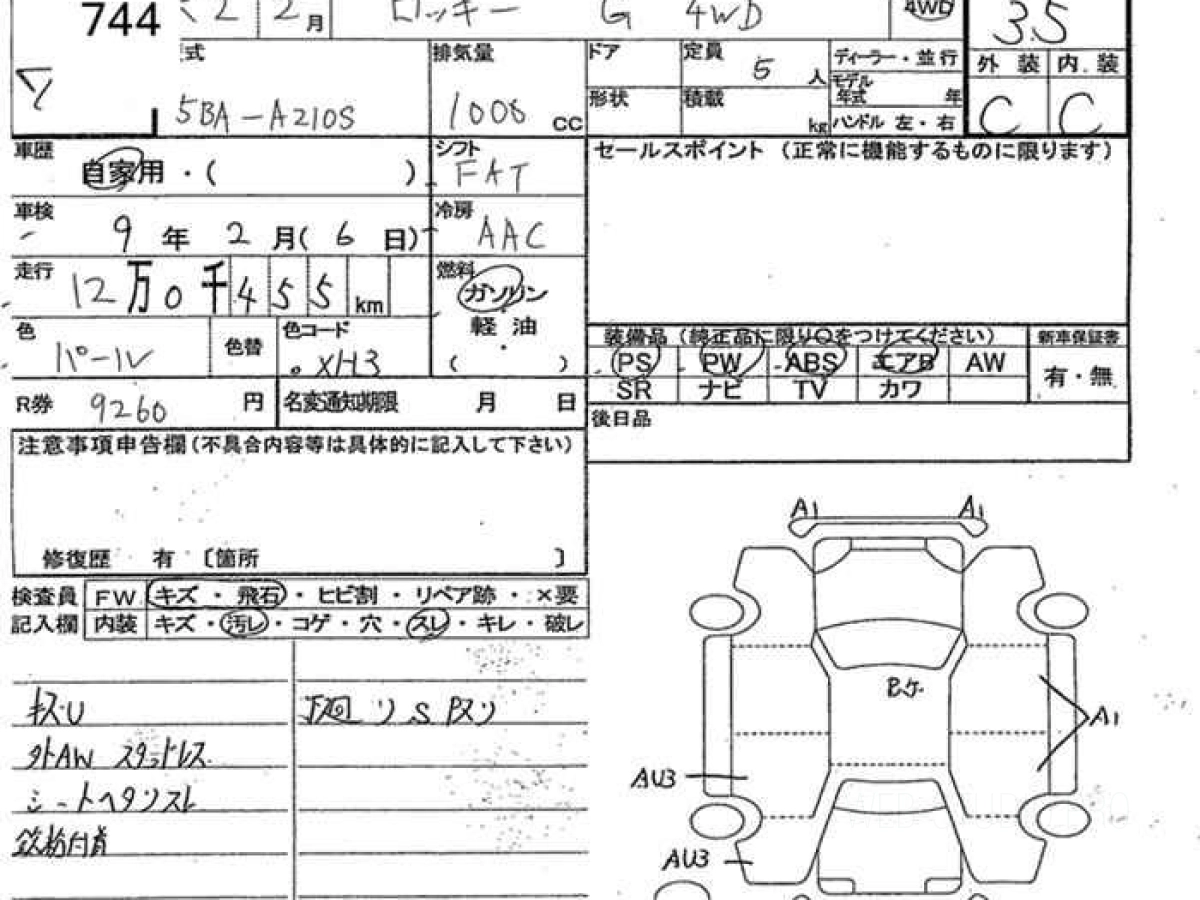 744 2 2月 ロッキー G 4WD 4WD 3.5
式 排気量 ドア 定員 5人 ディーラー・並行 外装 内装
5BA-A210S 1000 CC 形状 積載 kg モデル年式 年 ハンドル 左・右 C C
車歴 自家用・( ) シフト FAT セールスポイント (正常に機能するものに限ります)
車検 9年2月(6日) 冷房 AAC
走行 12万0千455km 燃料 ガソリン
軽油
( )
色 パール 色替 色コード XH3
装備品 (純正品に限り○をつけてください) 新車保証書
PS PW ABS エアB AW 有・無
SR ナビ TV カワ
R券 9260円 名変通知期限 月 日
後日品
注意事項申告欄(不具合内容等は具体的に記入して下さい)
修復歴 有 〔箇所 〕
検査員 FW キズ・飛石・ヒビ割・リペア跡・×要
記入欄 内装 キズ・汚レ・コゲ・穴・スレ・キレ・破レ
キズU
外AW スタッドレス
シートヘタリスレ
下廻りS
A1 A1
A1
AU3
AU3